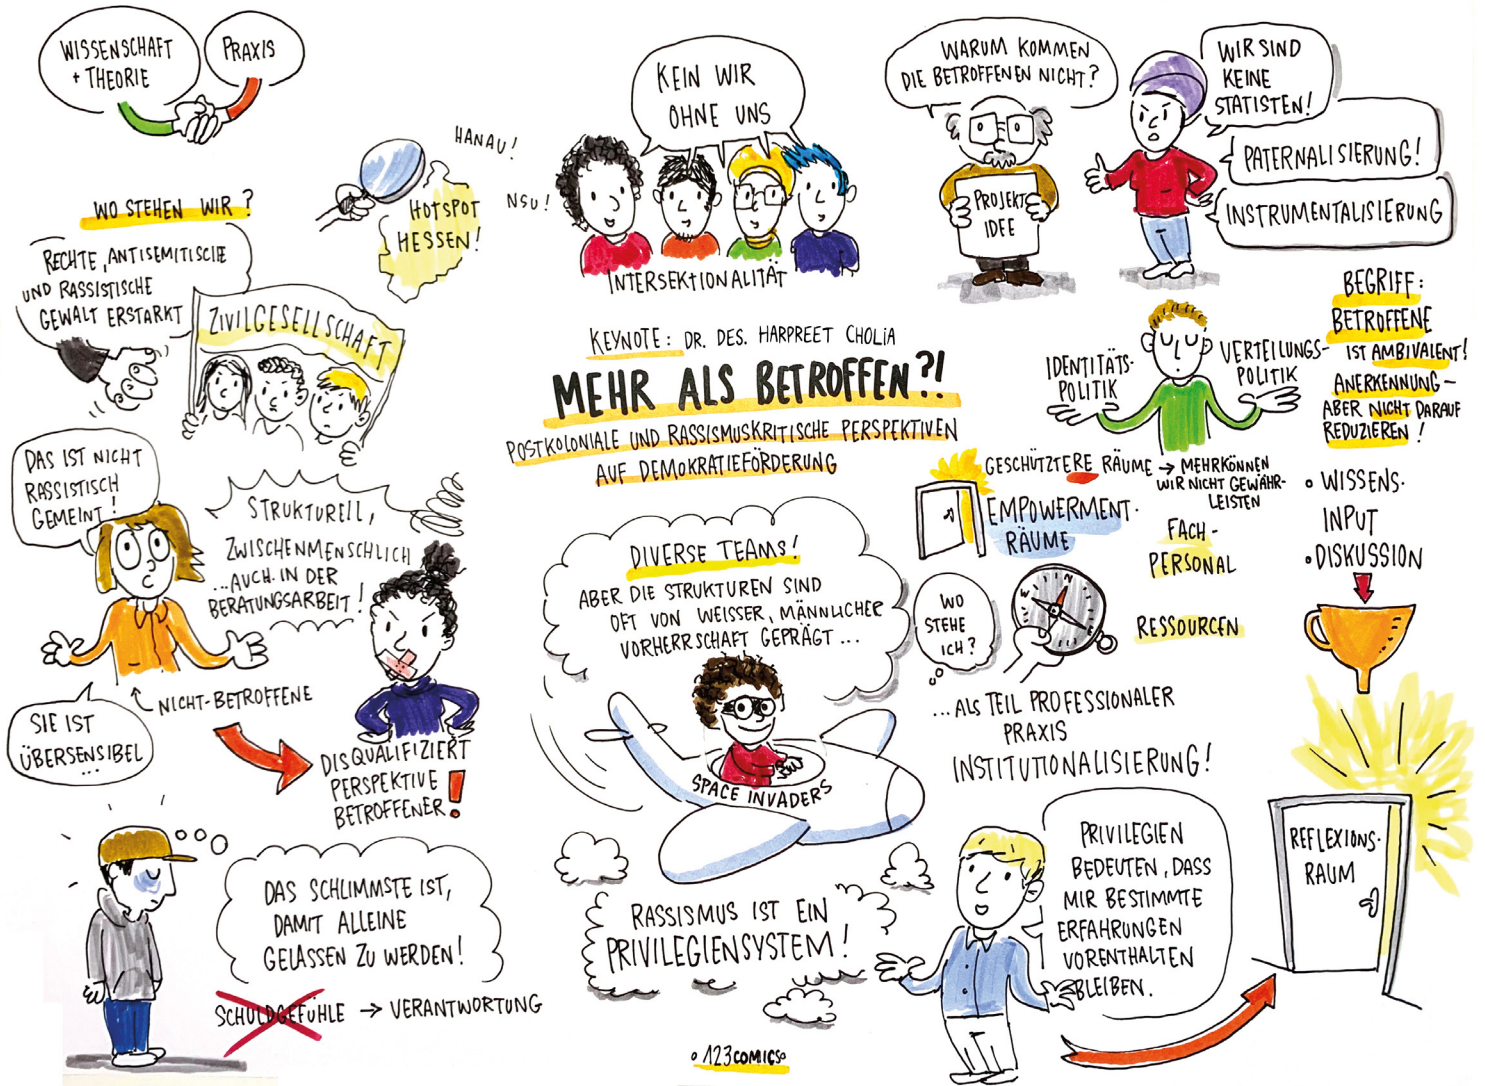 WISSENSCHAFT
+ THEORIE
PRAXIS
WO STEHEN WIR?
RECHTE, ANTISEMITISCHE
UND RASSISTISCHE
GEWALT ERSTARKT
HANAU!
NSU!
HOTSPOT
HESSEN!
ZIVILGESELLSCHAFT
DAS IST NICHT
RASSISTISCH
GEMEINT!
STRUKTURELL,
ZWISCHENMENSCHLICH
...AUCH IN DER
BERATUNGSARBEIT!
NICHT-BETROFFENE
SIE IST
ÜBERSENSIBEL
...
DISQUALIFIZIERT
PERSPEKTIVE
BETROFFENER!
DAS SCHLIMMSTE IST,
DAMIT ALLEINE
GELASSEN ZU WERDEN!
SCHULDGEFÜHLE → VERANTWORTUNG
KEIN WIR
OHNE UNS
INTERSEKTIONALITÄT
KEYNOTE: DR. DES. HARPREET CHOLIA
MEHR ALS BETROFFEN?!
POSTKOLONIALE UND RASSISMUSKRITISCHE PERSPEKTIVEN
AUF DEMOKRATIEFÖRDERUNG
DIVERSE TEAMS!
ABER DIE STRUKTUREN SIND
OFT VON WEISSER, MÄNNLICHER
VORHERRSCHAFT GEPRÄGT...
SPACE INVADERS
RASSISMUS IST EIN
PRIVILEGIENSYSTEM!
123COMICS
WARUM KOMMEN
DIE BETROFFENEN NICHT?
PROJEKT
IDEE
WIR SIND
KEINE
STATISTEN!
PATERNALISIERUNG!
INSTRUMENTALISIERUNG
IDENTITÄTS-
POLITIK
VERTEILUNGS-
POLITIK
BEGRIFF:
BETROFFENE
IST AMBIVALENT!
ANERKENNUNG-
ABER NICHT DARAUF
REDUZIEREN!
GESCHÜTZTERE RÄUME → MEHR KÖNNEN
WIR NICHT GEWÄHR-
LEISTEN
EMPOWERMENT-
RÄUME
FACH-
PERSONAL
WO
STEHE
ICH?
N
W
RESSOURCEN
...ALS TEIL PROFESSIONALER
PRAXIS
INSTITUTIONALISIERUNG!
• WISSENS-
INPUT
• DISKUSSION
REFLEXIONS-
RAUM
PRIVILEGIEN
BEDEUTEN, DASS
MIR BESTIMMTE
ERFAHRUNGEN
VORENTHALTEN
BLEIBEN.